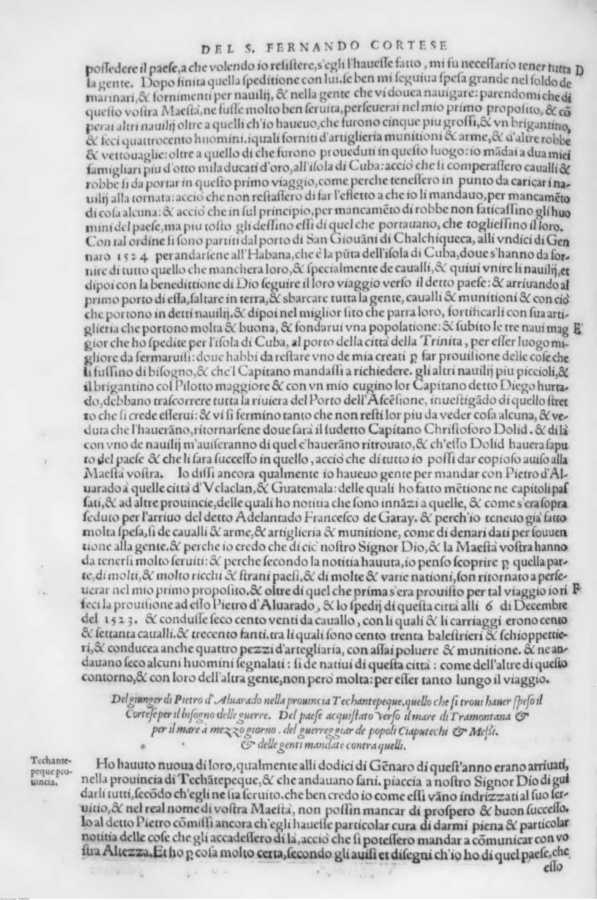 DEL S. FERNANDO CORTESE
possedere il paese, a che volendo io resistere, s'egli l'hauesse fatto, mi fu necessario tener tutta D
la gente. Dopo finita quella speditione con lui, se ben mi seguiua spesa grande nel soldo de
marinari, & fornimenti per nauilij, & nella gente che vi douea nauigare: parendomi che di
questo vostra Maestà, ne fusse molto ben seruita, perseuerai nel mio primo proposito, & cõ
perai altri nauilij oltre a quelli ch'io haueuo, che furono cinque piu grossi, & vn brigantino,
& feci quattrocento huomini. iquali forniti d'artiglieria munitioni & arme, & d'altre robbe
& vettouaglie: oltre a quello di che furono proueduti in questo luogo: io mãdai a dua miei
famigliari piu d'otto mila ducati d'oro, all'isola di Cuba: acciò che si comperassero caualli &
robbe si da portar in questo primo viaggio, come perche tenessero in punto da caricar i na-
uilij alla tornata: acciò che non restassero di far l'effetto a che io li mandauo, per mancamẽto
di cosa alcuna: & acciò che in sul principio, per mancamẽto di robbe non faticassino gli huo
mini del paese, ma piu tosto gli dessino essi di quel che portauano, che togliessino il loro.
Con tal ordine si sono partiti dal porto di San Giouãni di Chalchiqueca, alli vndici di Gen
naro 1524 per andarsene all'Habana, che è la pũta dell'isola di Cuba, doue s'hanno da for-
nire di tutto quello che manchera loro, & specialmente de caualli, & quiui vnire li nauilij, et
dipoi con la benedittione di Dio seguire il loro viaggio verso il detto paese: & arriuando al
primo porto di essa, saltare in terra, & sbarcare tutta la gente, caualli & munitioni & con ciò
che portono in detti nauilij. & dipoi nel miglior sito che parra loro, fortificarli con sua arti-
glieria che portono molta & buona, & fondarui vna popolatione: & subito le tre naui mag E
gior che ho spedite per l'isola di Cuba, al porto della città della Trinita, per esser luogo mi-
gliore da fermaruisi: doue habbi da restare vno de mia creati ꝑ far prouisione delle cose che
li fussino di bisogno, & che'l Capitano mandassi a richiedere. gli altri nauilij piu piccioli, &
il brigantino col Pilotto maggiore & con vn mio cugino lor Capitano detto Diego hurta-
do, debbano trascorrere tutta la riuiera del Porto dell'Ascẽsione, inuestigãdo di quello stret
to che si crede esserui: & vi si fermino tanto che non resti lor piu da veder cosa alcuna, & ve-
duta che l'hauerãno, ritornarsene doue sarà il sudetto Capitano Christoforo Dolid. & di là
con vno de nauilij m'auiseranno di quel c'hauerãno ritrouato, & ch'esso Dolid hauera sapu
to del paese & che li sara successo in quello, acciò che di tutto io possi dar copioso auiso alla
Maestà vostra. Io dissi ancora qualmente io haueuo gente per mandar con Pietro d'Al-
uarado a quelle città d'Vclaclan, & Guatemala: delle quali ho fatto mẽtione ne capitoli pas
sati, & ad altre prouincie, delle quali ho notitia che sono innãzi a quelle, & come s'era sopra
seduto per l'arriuo del detto Adelantado Francesco de Garay. & perch'io teneuo già fatto
molta spesa, si de caualli & arme, & artiglieria & munitione, come di denari dati per souuen
tione alla gente. & perche io credo che di ciò nostro Signor Dio, & la Maestà vostra hanno
da tenersi molto seruiti: & perche secondo la notitia hauuta, io penso scoprire ꝑ quella par-
te, di molti, & molto ricchi & strani paesi, & di molte & varie nationi, son ritornato a perse-
uerar nel mio primo proposito. & oltre di quel che prima s'era prouisto per tal viaggio iori F
feci la prouisione ad esso Pietro d'Aluarado, & lo spedij di questa città alli 6 di Decembre
del 1523. & condusse seco cento venti da cauallo, con li quali & li carriaggi erono cento
& settanta caualli. & trecento fanti. tra li quali sono cento trenta balestrieri & schioppettie-
ri, & conducea anche quattro pezzi d'artegliaria, con assai poluere & munitione. & ne an-
dauano seco alcuni huomini segnalati: si de natiui di questa città: come dell'altre di questo
contorno, & con loro dell'altra gente, non però molta: per esser tanto lungo il viaggio.
Del giunger di Pietro d'Aluarado nella prouincia Techantepeque, quello che si troui hauer speso il
Cortese per il bisogno delle guerre. Del paese acquistato verso il mare di Tramontana &
per il mare a mezzo giorno. del guerreggiar de popoli Ciaputechi & Messi.
& delle genti mandate contra quelli.
Techante-
peque pro-
uincia.
Ho hauuto nuoua di loro, qualmente alli dodici di Gẽnaro di quest'anno erano arriuati,
nella prouincia di Techãtepeque, & che andauano sani. piaccia a nostro Signor Dio di gui
darli tutti, secõdo ch'egli ne sia seruito. che ben credo io come essi vãno indrizzati al suo ser-
uitio, & nel real nome di vostra Maestà, non possin mancar di prospero & buon successo.
Io al detto Pietro cõmissi ancora ch'egli hauesse particolar cura di darmi piena & particolar
notitia delle cose che gli accadessero di là, acciò che si potessero mandar a cõmunicar con vo
stra Altezza. Et ho ꝑ cosa molto certa, secondo gli auisi et disegni ch'io ho di quel paese, che
esso